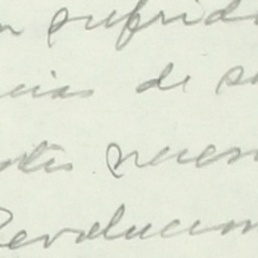 n sufrido
cias de s
stes nues
Revolucion